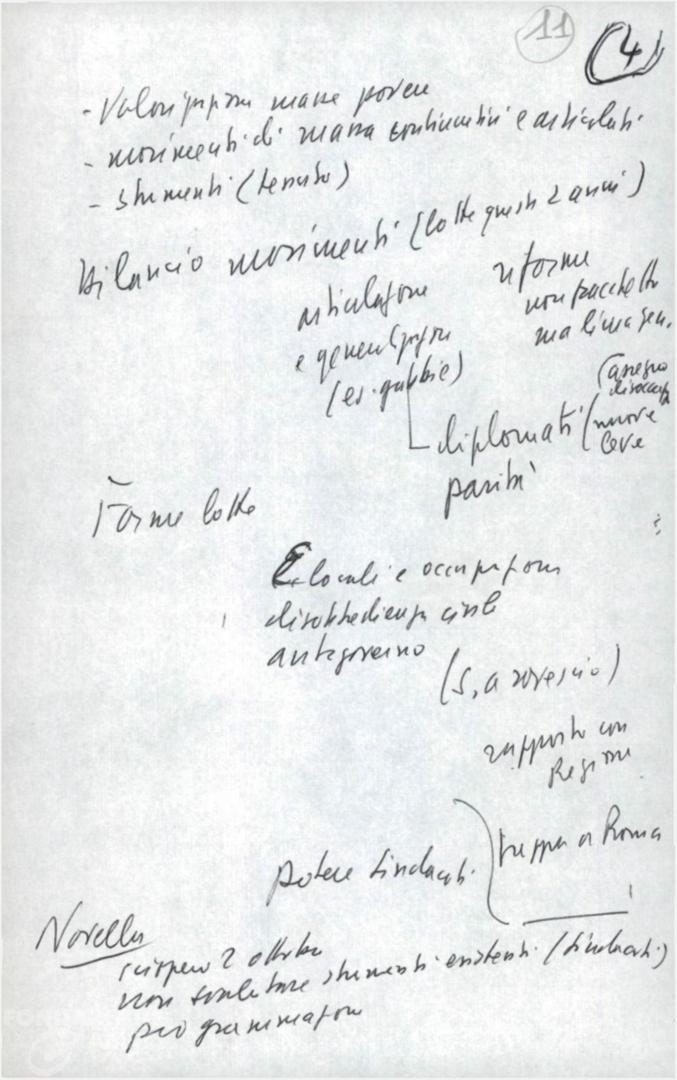 11
4
- Valorizzazione masse povere
- movimenti di massa continuativi e articolati
- strumenti (tessuto)
Bilancio movimenti (lotte questi 2 anni)
articolazione
e generalizzazione
(es. gabbie)
riforme
non pacchetto
ma linea gen.
(assegno
disoccup.
diplomati (nuove
leve
parità
Forme lotte
locali e occupazioni
disobbedienza civile
antigoverno
(S. a rovescio)
rapporto con
Regione
potere sindacati
truppa a Roma
Novella
sciopero 2 ottobre
non sono strumenti esistenti (sindacati)
programmazione